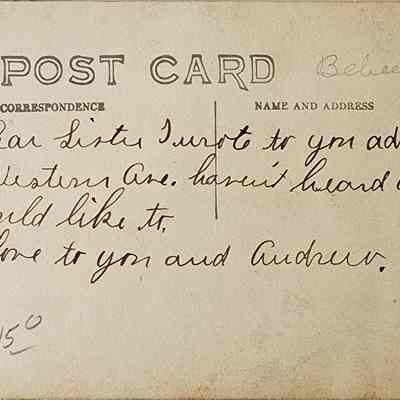 POST CARD
CORRESPONDENCE
NAME AND ADDRESS
ear Sister I wrote to you ad
Western Ave. haven't heard
uld like to.
love to you and Andrew.
50